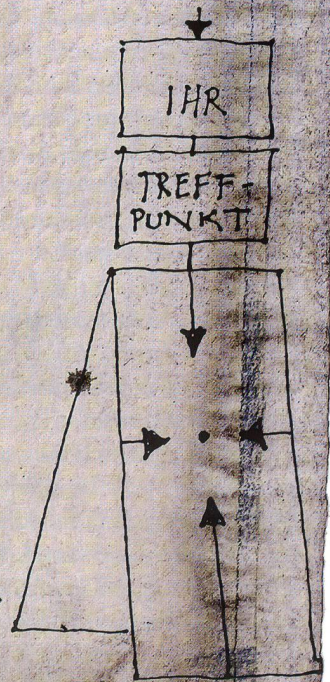 IHR
TREFF-
PUNKT